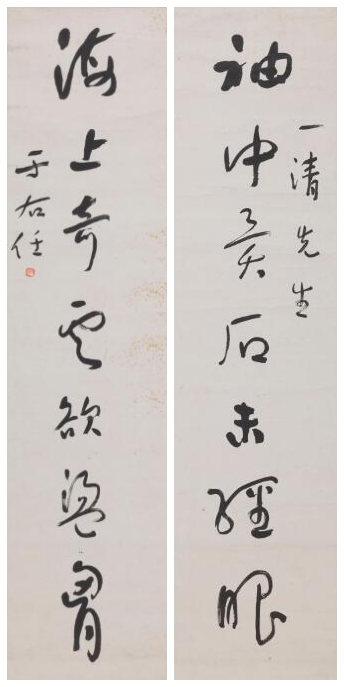 一清先生
袖中異石未經眼
海上奇雲欲盪胷
于右任